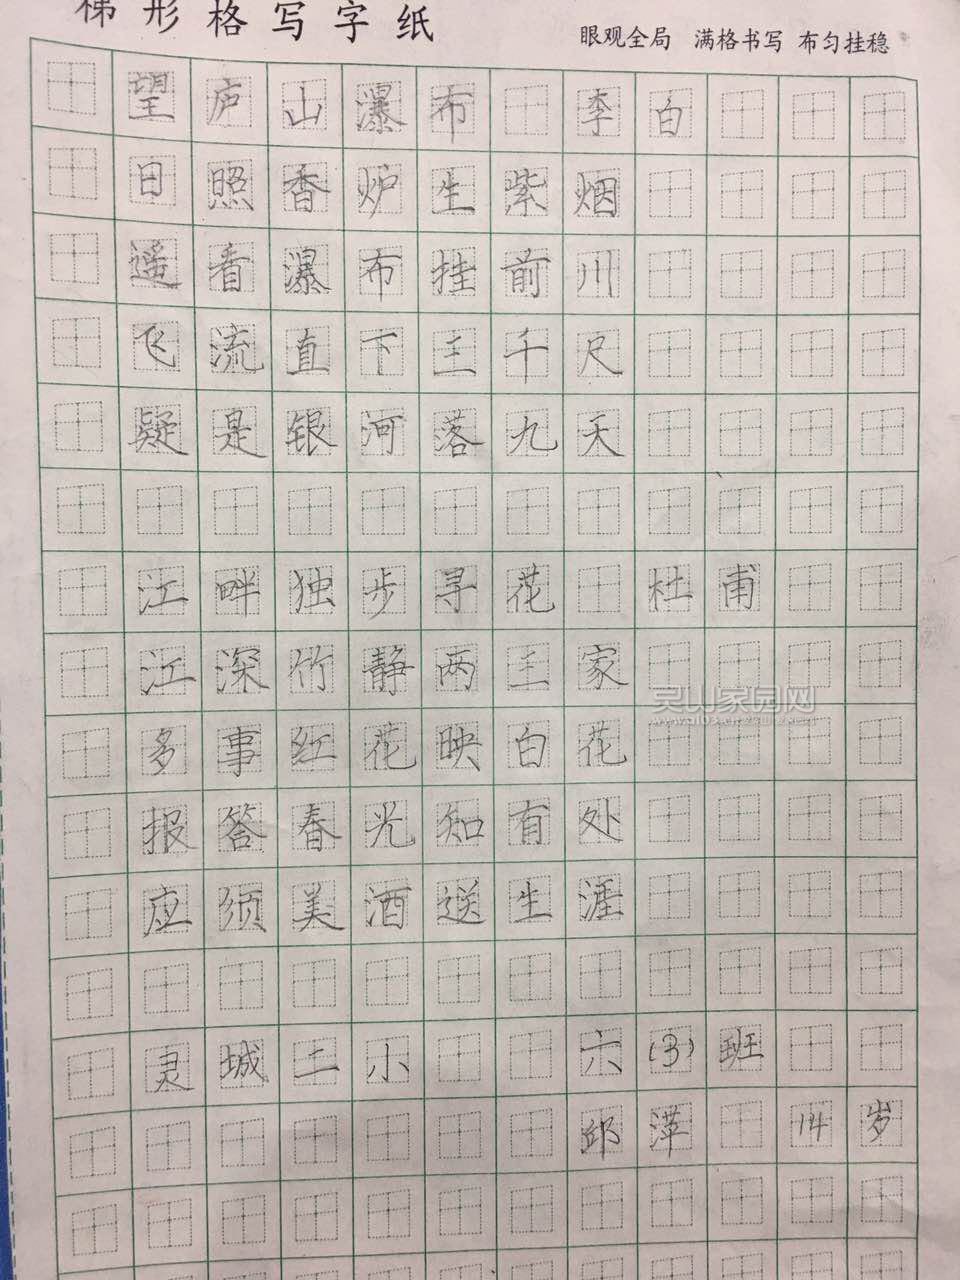 梯形格写字纸
眼观全局 满格书写 布匀挂稳
望庐山瀑布 李白
日照香炉生紫烟
遥看瀑布挂前川
飞流直下三千尺
疑是银河落九天
江畔独步寻花 杜甫
江深竹静两三家
多事红花映白花
报答春光知有处
应须美酒送生涯
灵城二小 六(3)班
邱萍 14岁
灵山家园网